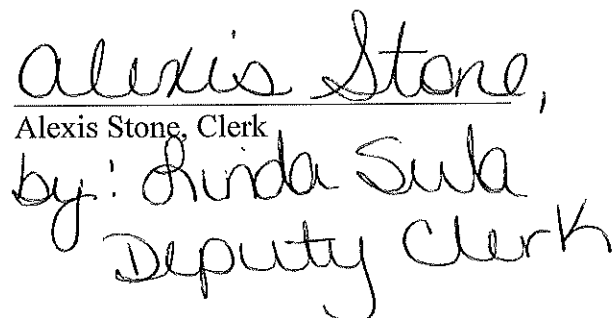 Alexis Stone,
Alexis Stone, Clerk
by: Linda Sula
Deputy Clerk